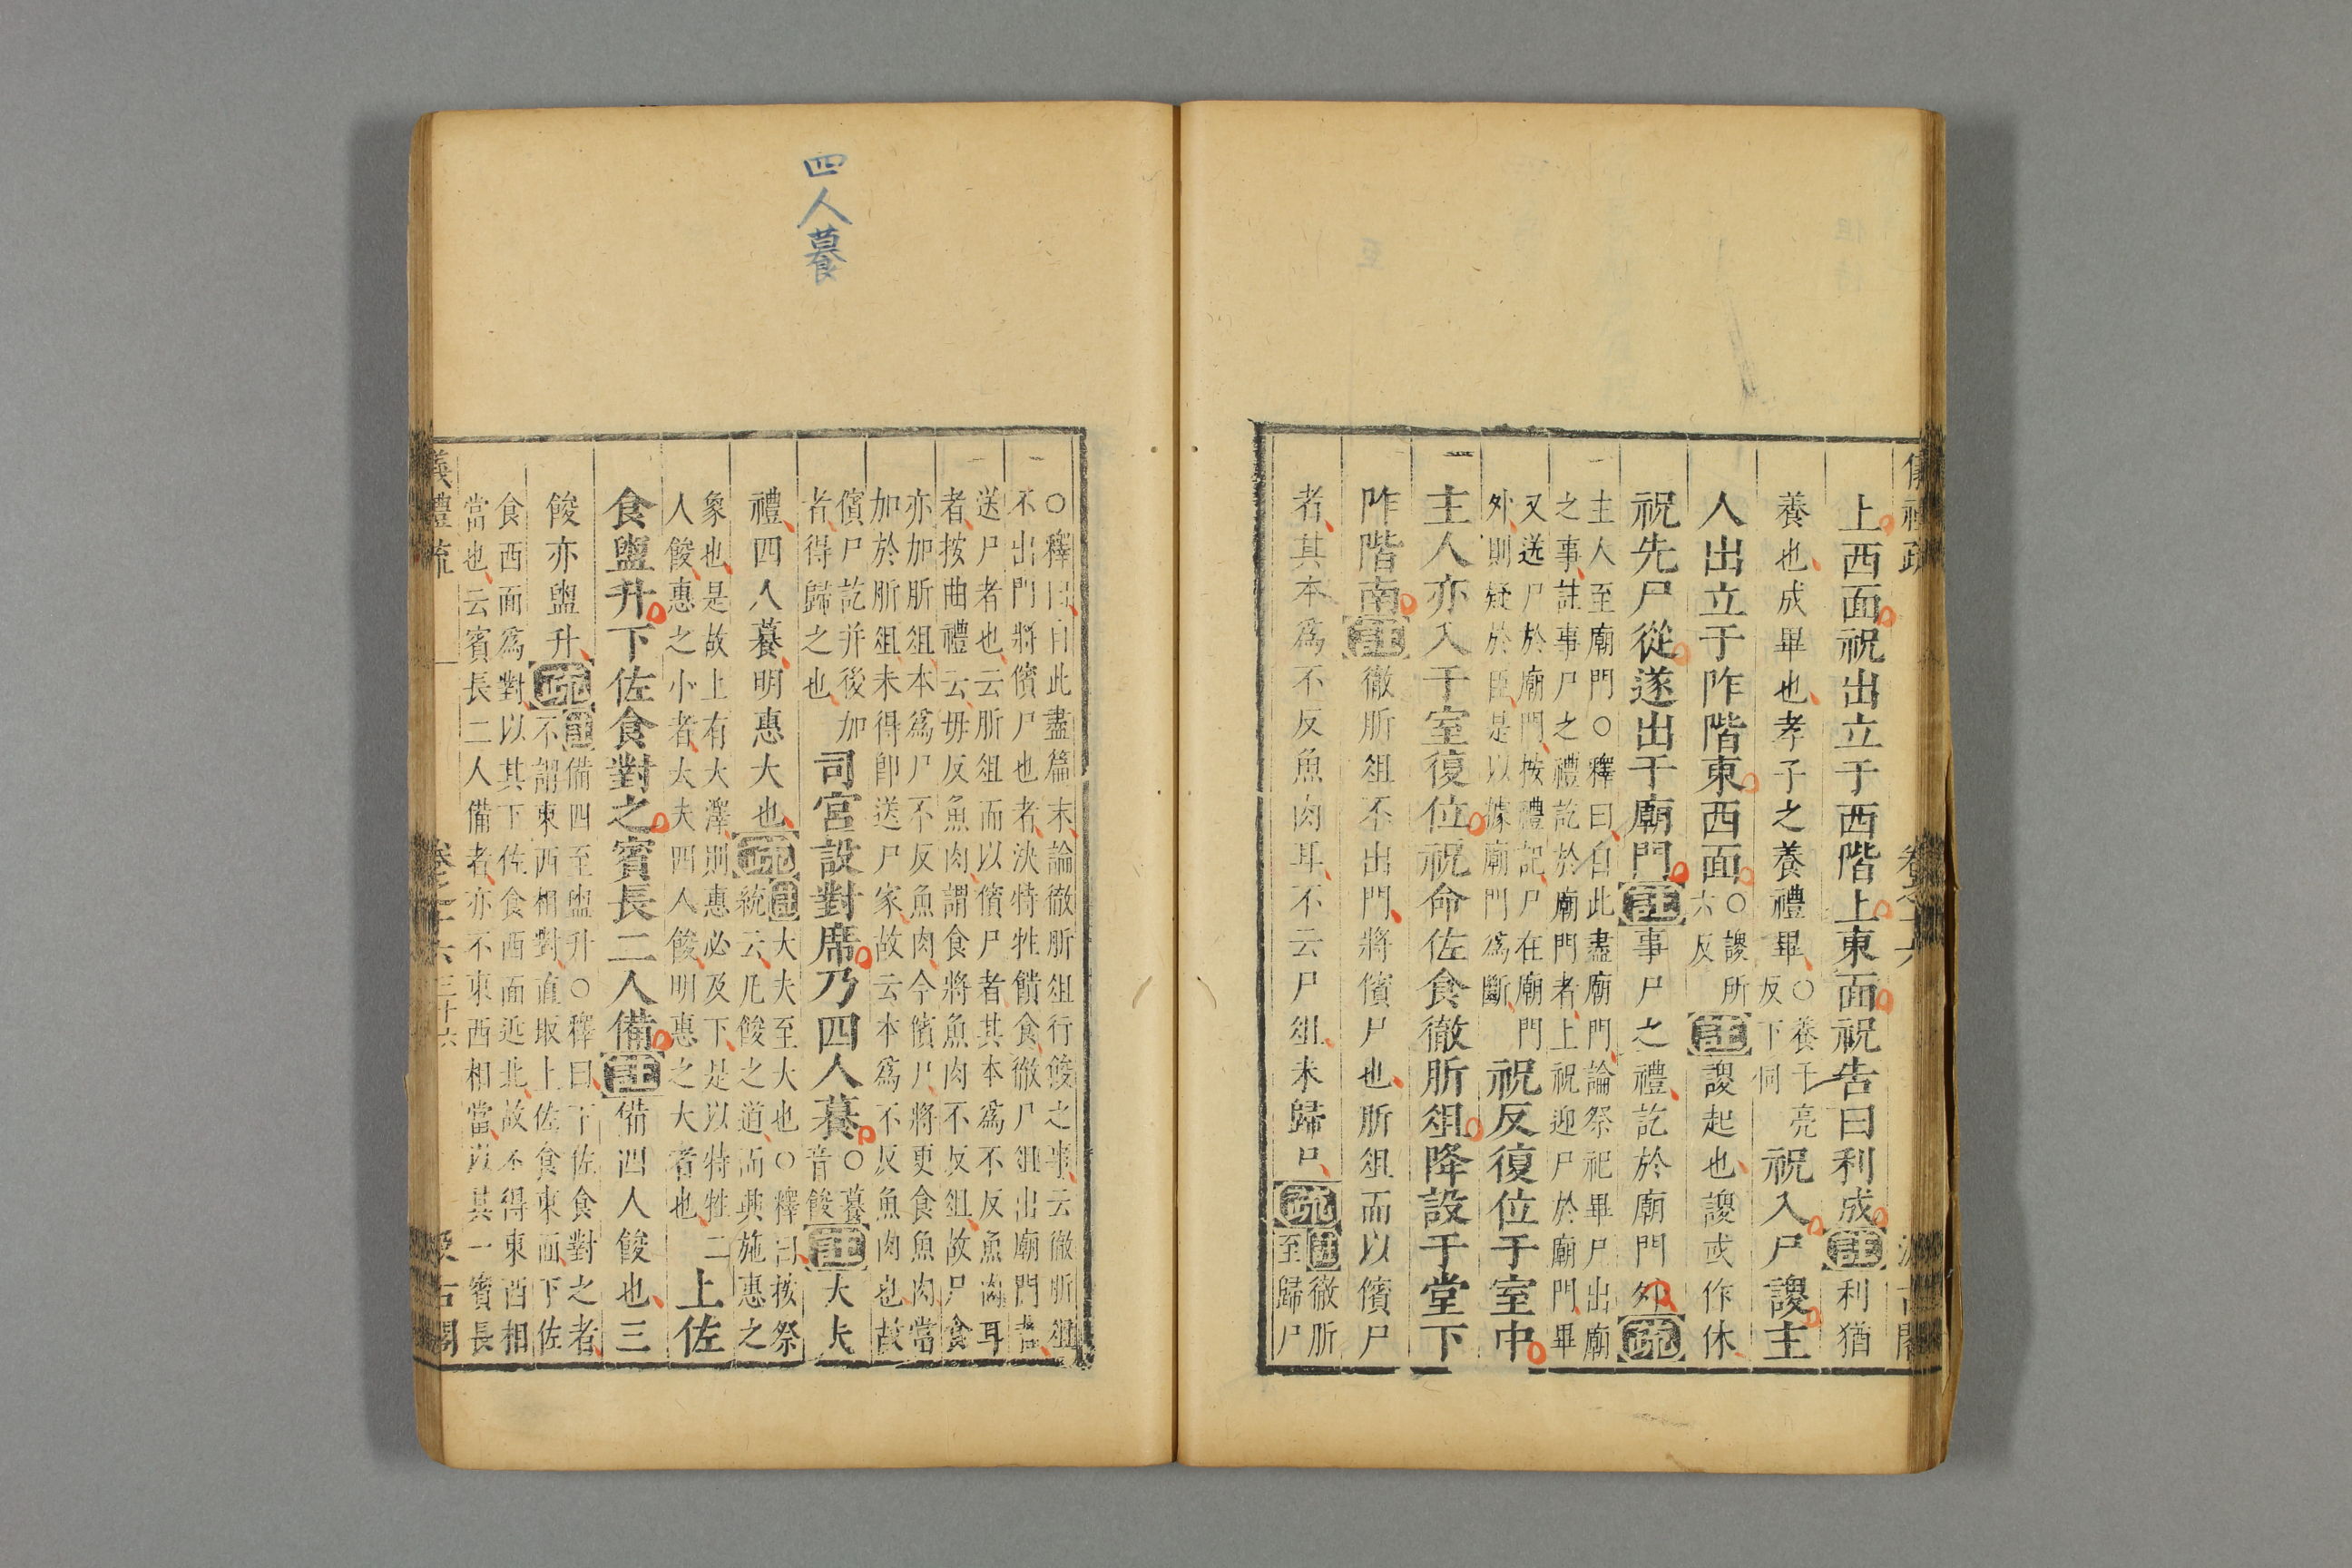 儀禮疏 卷之十六 汲古閣
上西面祝出立于西階上東面祝告曰利成註利猶
養也成畢也孝子之養禮畢○養于亮反下同祝入尸謖主
人出立于阼階東西面○謖所六反註謖起也謖或作休
祝先尸從遂出于廟門註事尸之禮訖於廟門外疏
主人至廟門○釋曰自此盡廟門論祭祀畢尸出廟
之事註事尸之禮訖於廟門者上祝迎尸於廟門畢
又送尸於廟門按禮記尸在廟門
外則疑於臣是以據廟門爲斷祝反復位于室中
主人亦入于室復位祝命佐食徹肵俎降設于堂下
阼階南註徹肵俎不出門將儐尸也肵俎而以儐尸
者其本爲不反魚肉耳不云尸俎未歸尸疏註徹肵
至歸尸
○釋曰自此盡篇末論徹肵俎行餕之事云徹肵俎
不出門將儐尸也者決特牲饋食徹尸俎出廟門者
送尸者也云肵俎而以儐尸者其本爲不反魚肉耳
者按曲禮云毋反魚肉謂食將魚肉不反俎故尸食
亦加肵俎本爲尸不反魚肉今儐尸將更食魚肉當
加於肵俎未得卽送尸家故云本爲不反魚肉也故
儐尸訖并後加
者得歸之也司宮設對席乃四人養○養音餕註大夫
禮四人養明惠大也疏註大夫至大也○釋曰按祭
統云凡餕之道而興施惠之
象也是故上有大澤則惠必及下是以特牲二
人餕惠之小者大夫四人餕明惠之大者也上佐
食盥升下佐食對之賓長二人備註備四人餕也三
餕亦盥升疏註備四至盥升○釋曰下佐食對之者
不謂東西相對直取上佐食東面下佐
食西面爲對以其下佐食西面近北故不得東西相
當也云賓長二人備者亦不東西相當以其一賓長
儀禮疏 卷之十六 三十六 汲古閣
四人養